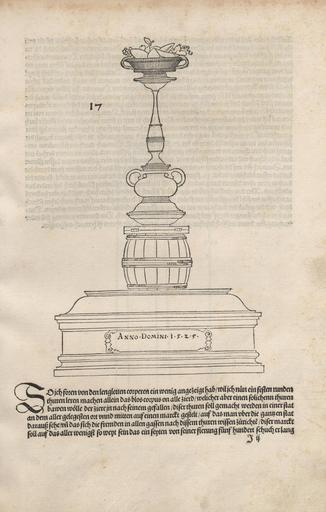 17
ANNO·DOMINI·1·5·2·5·
So ich foren von den lengleten corporen ein wenig angezeigt hab/ wil ich nün ein festen runden
thuren leren machen allein das blos corpus on alle zierd/ welicher aber einen solichenn thuren
bawen wölle der ziere in nach seinem gefallen/ diser thuren soll gemacht werden in einer stat
an dem aller gelegesten ort unnd miten auf einen marckt gestelt/ auf das man vber die gantzen stat
darauß sehe
das sich die fremden in allen gassen nach dissem thuren wissen zürichte/ diser marckt
soll auf das aller wenigst so weyt sein das ein seyten von seiner fierung fünf hundert schuch er lang
J ij